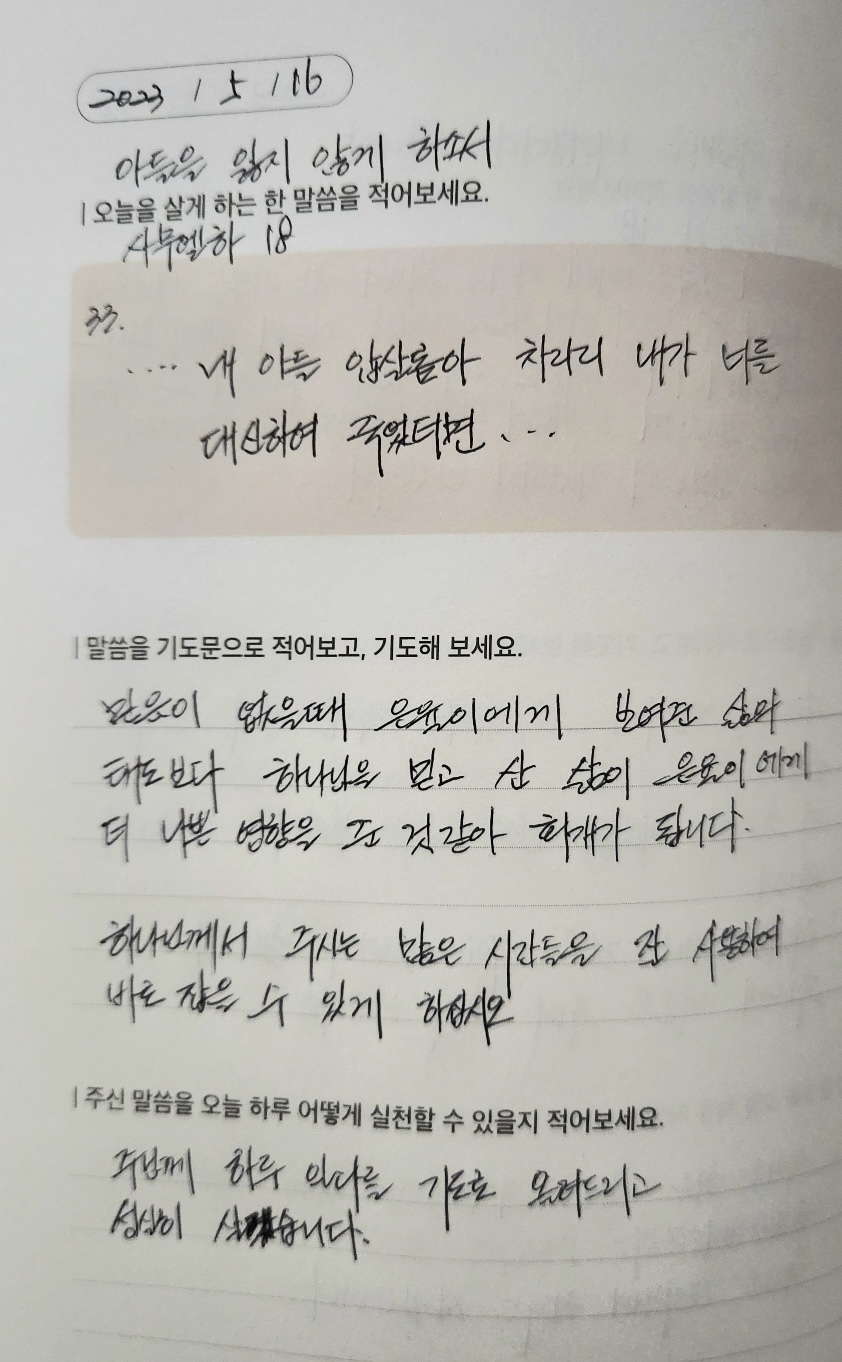 2023 / 5 / 16
아들을 잃지 않게 하소서
오늘을 살게 하는 한 말씀을 적어보세요.
사무엘하 18
33.
.... 내 아들 압살롬아 차라리 내가 너를
대신하여 죽었더면 ...
말씀을 기도문으로 적어보고, 기도해 보세요.
믿음이 없을때 은율이에게 보여준 삶의
태도보다 하나님을 믿고 산 삶이 은율이에게
더 나쁜 영향을 준 것같아 회개가 됩니다.
하나님께서 주시는 많은 시간들을 잘 사용하여
바로 잡을 수 있게 하십시오
주신 말씀을 오늘 하루 어떻게 실천할 수 있을지 적어보세요.
주님께 하루 기도로 올려드리고
성실히